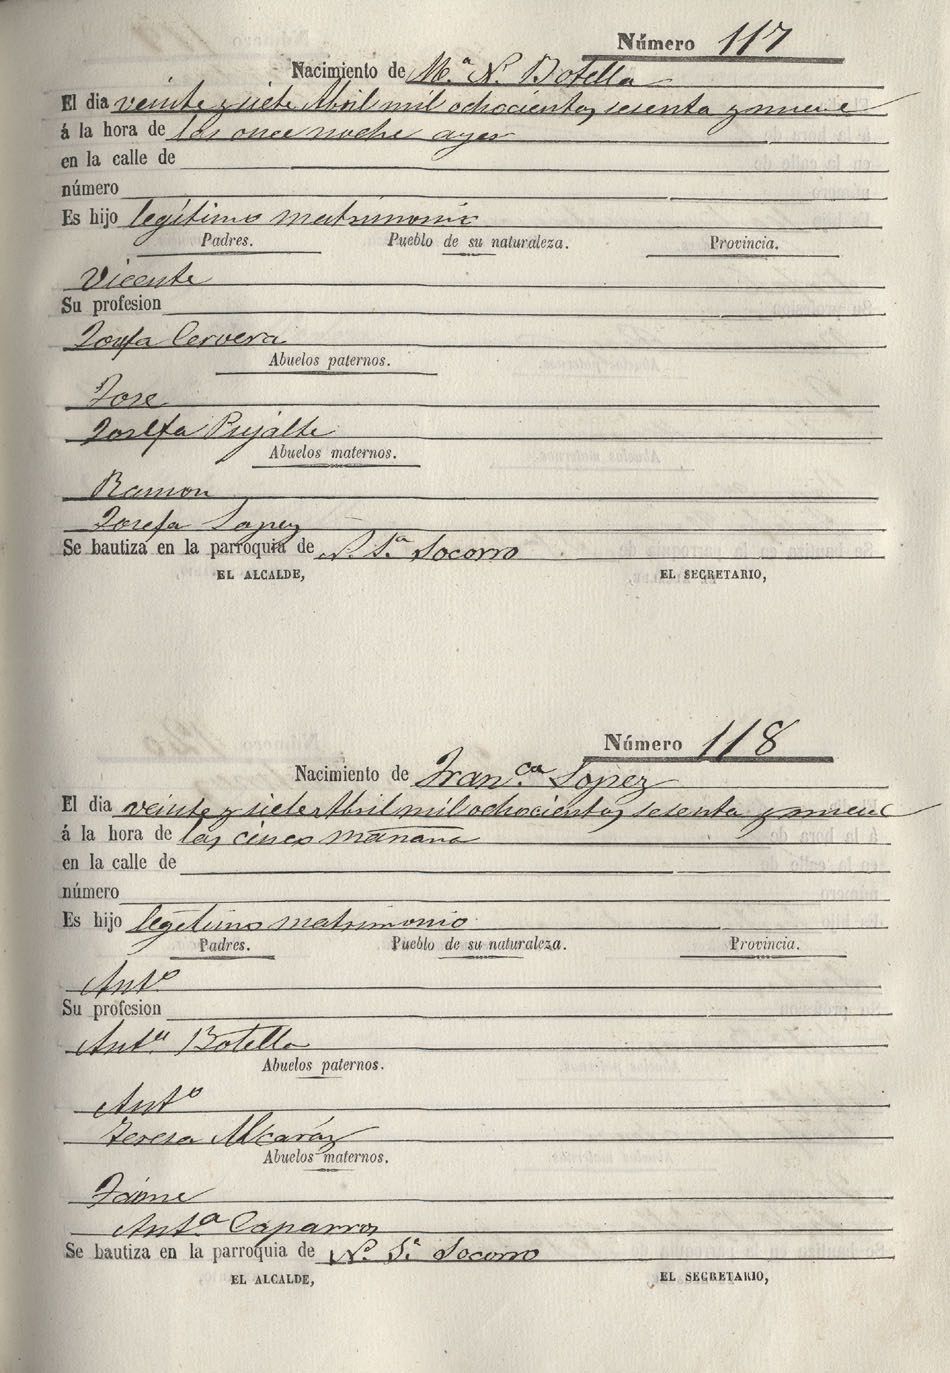 Número 117
Nacimiento de M.ª N. Botella
El dia veinte y siete Abril mil ochocientos sesenta y nueve
á la hora de las once noche ayer
en la calle de
número
Es hijo legítimo matrimonio
Padres. Pueblo de su naturaleza. Provincia.
Vicente
Su profesion
Josefa Cervera
Abuelos paternos.
Jose
Josefa Pujalte
Abuelos maternos.
Ramon
Josefa Lopez
Se bautiza en la parroquia de N. S.ª Socorro
EL ALCALDE, EL SECRETARIO,
Número 118
Nacimiento de Fran.ca Lopez
El dia veinte y siete Abril mil ochocientos sesenta y nueve
á la hora de las cinco mañana
en la calle de
número
Es hijo legítimo matrimonio
Padres. Pueblo de su naturaleza. Provincia.
Ant.º
Su profesion
Ant.ª Botella
Abuelos paternos.
Ant.º
Teresa Alcaráz
Abuelos maternos.
Jaime
Ant.ª Caparros
Se bautiza en la parroquia de N.ª S.ª Socorro
EL ALCALDE, EL SECRETARIO,